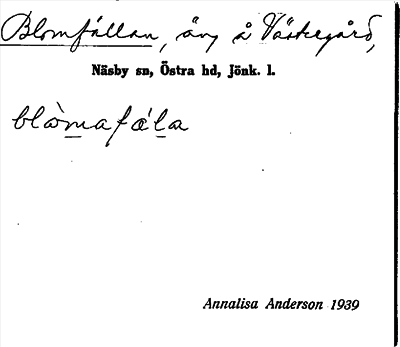 Blomfållan, äng å Västergård,
Näsby sn, Östra hd, Jönk. l.
blòmafá̊la
Annalisa Anderson 1939